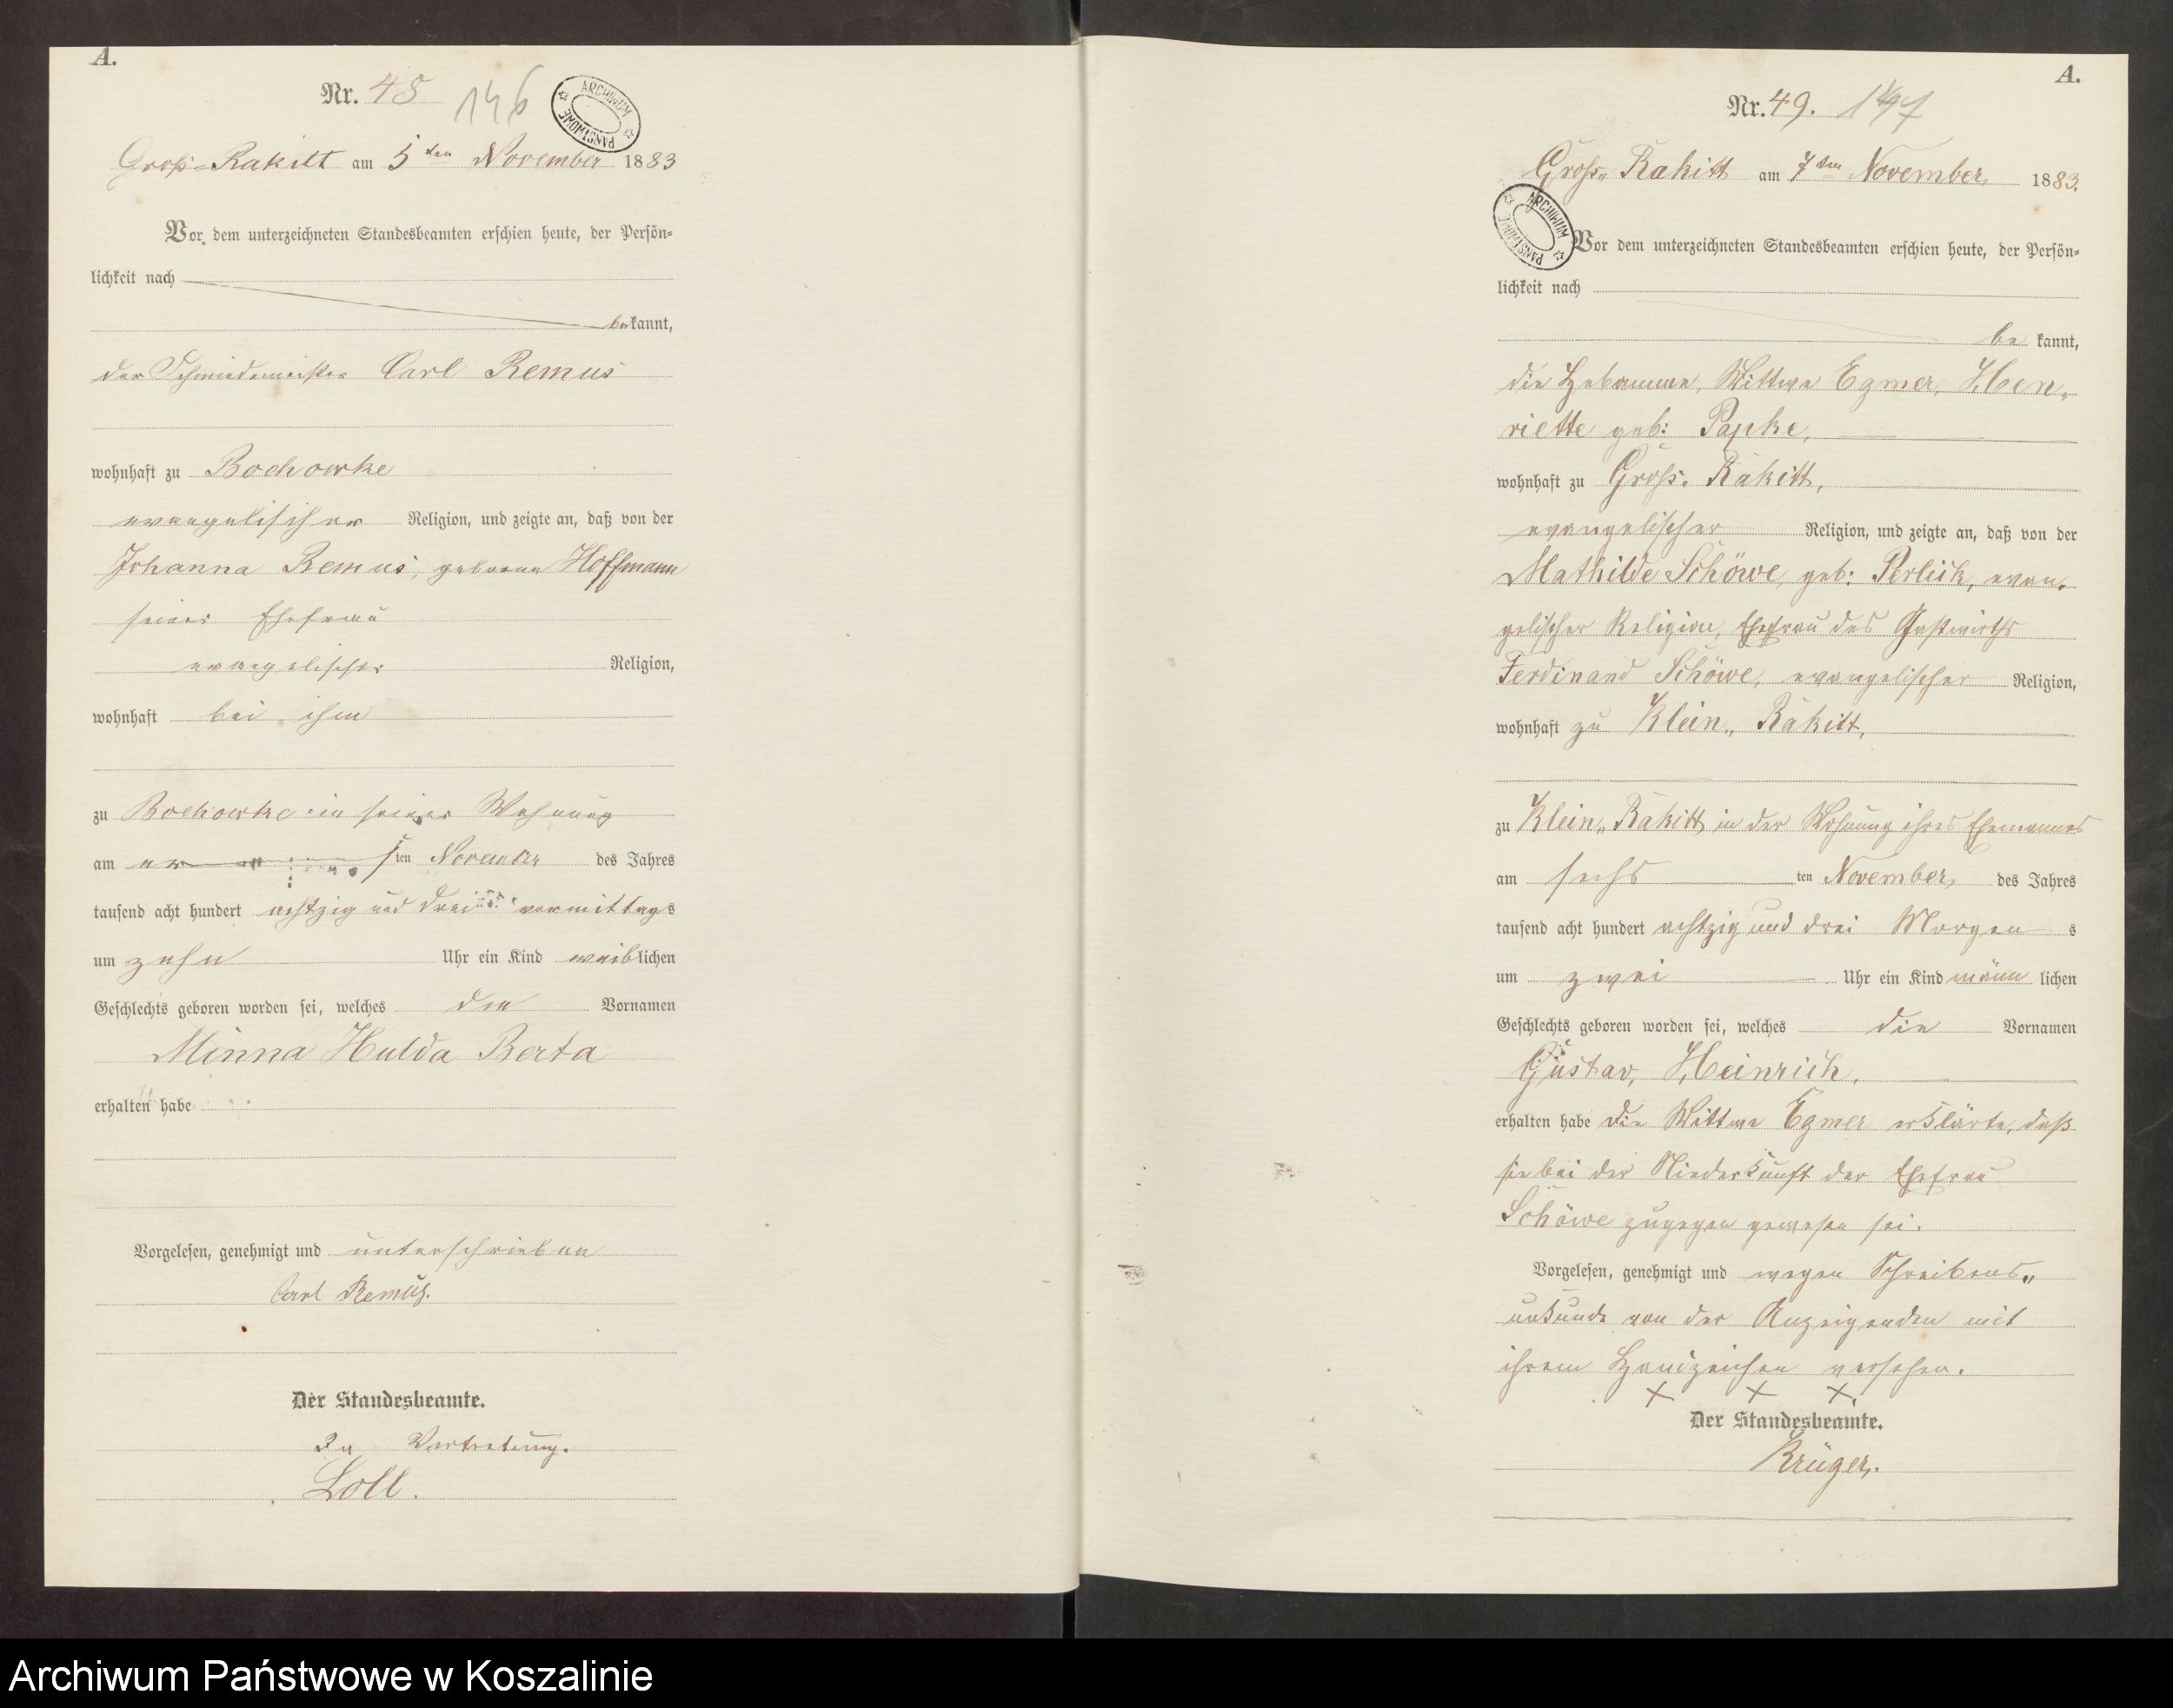 A.
Nr. 48
146
ARCHIWUM PAŃSTWOWE
Groß-Rakitt am 5ten November 1883
Vor dem unterzeichneten Standesbeamten erschien heute, der Persön-
lichkeit nach
bekannt,
der Schmiedemeister Carl Remus
wohnhaft zu Bochowke
evangelischer Religion, und zeigte an, daß von der
Johanna Remus, geborene Hoffmann
seiner Ehefrau
evangelischer Religion,
wohnhaft bei ihm
zu Bochowke in seiner Wohnung
am ersten November des Jahres
tausend acht hundert achtzig und drei vormittags
um zehn Uhr ein Kind weiblichen
Geschlechts geboren worden sei, welches die Vornamen
Minna Hulda Berta
erhalten habe
Vorgelesen, genehmigt und unterschrieben
Carl Remus.
Der Standesbeamte.
In Vertretung.
Loll.
A.
Nr. 49. 147
Groß- Rakitt am 7ten November 1883.
ARCHIWUM PAŃSTWOWE
Vor dem unterzeichneten Standesbeamten erschien heute, der Persön-
lichkeit nach
bekannt,
die Hebamme, Wittwe Egmer, Hen-
riette geb: Papke,
wohnhaft zu Groß- Rakitt,
evangelischer Religion, und zeigte an, daß von der
Mathilde Schöwe, geb: Perlick, evan-
gelischer Religion, Ehefrau des Gastwirths
Ferdinand Schöwe, evangelischer Religion,
wohnhaft zu Klein- Rakitt,
zu Klein- Rakitt, in der Wohnung ihres Ehemannes
am sechsten November, des Jahres
tausend acht hundert achtzig und drei Morgens
um zwei Uhr ein Kind männlichen
Geschlechts geboren worden sei, welches die Vornamen
Gustav, Heinrich,
erhalten habe die Wittwe Egmer erklärte, daß
sie bei der Niederkunft der Ehefrau
Schöwe zugegen gewesen sei.
Vorgelesen, genehmigt und wegen Schreibens-
unkunde von der Anzeigenden mit
ihrem Handzeichen versehen.
X X X
Der Standesbeamte.
Krüger.
Archiwum Państwowe w Koszalinie